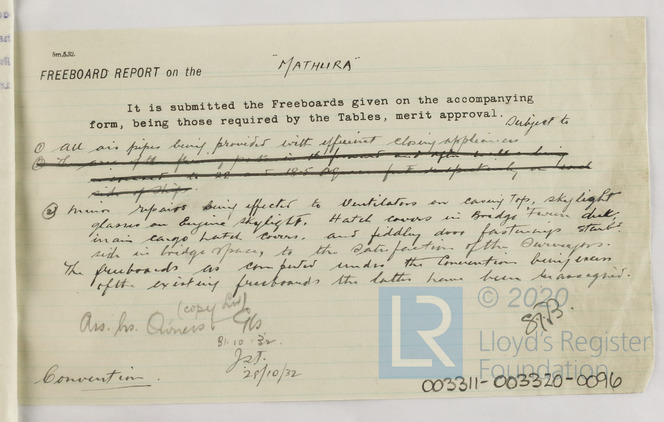 5m.5.32.
FREEBOARD REPORT on the "MATHURA"
It is submitted the Freeboards given on the accompanying
form, being those required by the Tables, merit approval. Subject to
① All air pipes being provided with efficient closing appliances
② Minor repairs being effected to Ventilators on casing top, skylight
glasses on Engine skylight. Hatch covers in Bridge 'tween deck,
main cargo hatch covers, and fiddley door fastenings starb.
side in bridge space, to the satisfaction of the Surveyors.
The freeboards as computed under the Convention being in excess
of the existing freeboards the latter have been reassigned.
(copy Lrs)
Owners
31.10.32
J.S.T.
28/10/32
Convention.
LR
© 2020
Lloyd's Register
Foundation
003311-003320-0096